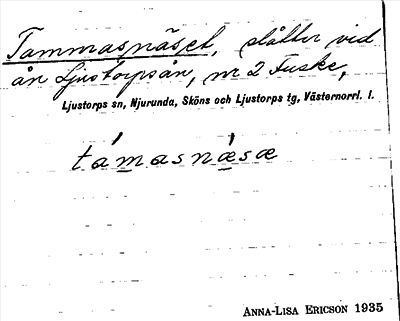 Tammasnäset, slåtter vid
ån Ljustorpsån, nr 2 Fuske,
Ljustorps sn, Njurunda, Sköns och Ljustorps tg, Västernorrl. l.
támasnæ̀sæ
ANNA-LISA ERICSON 1935